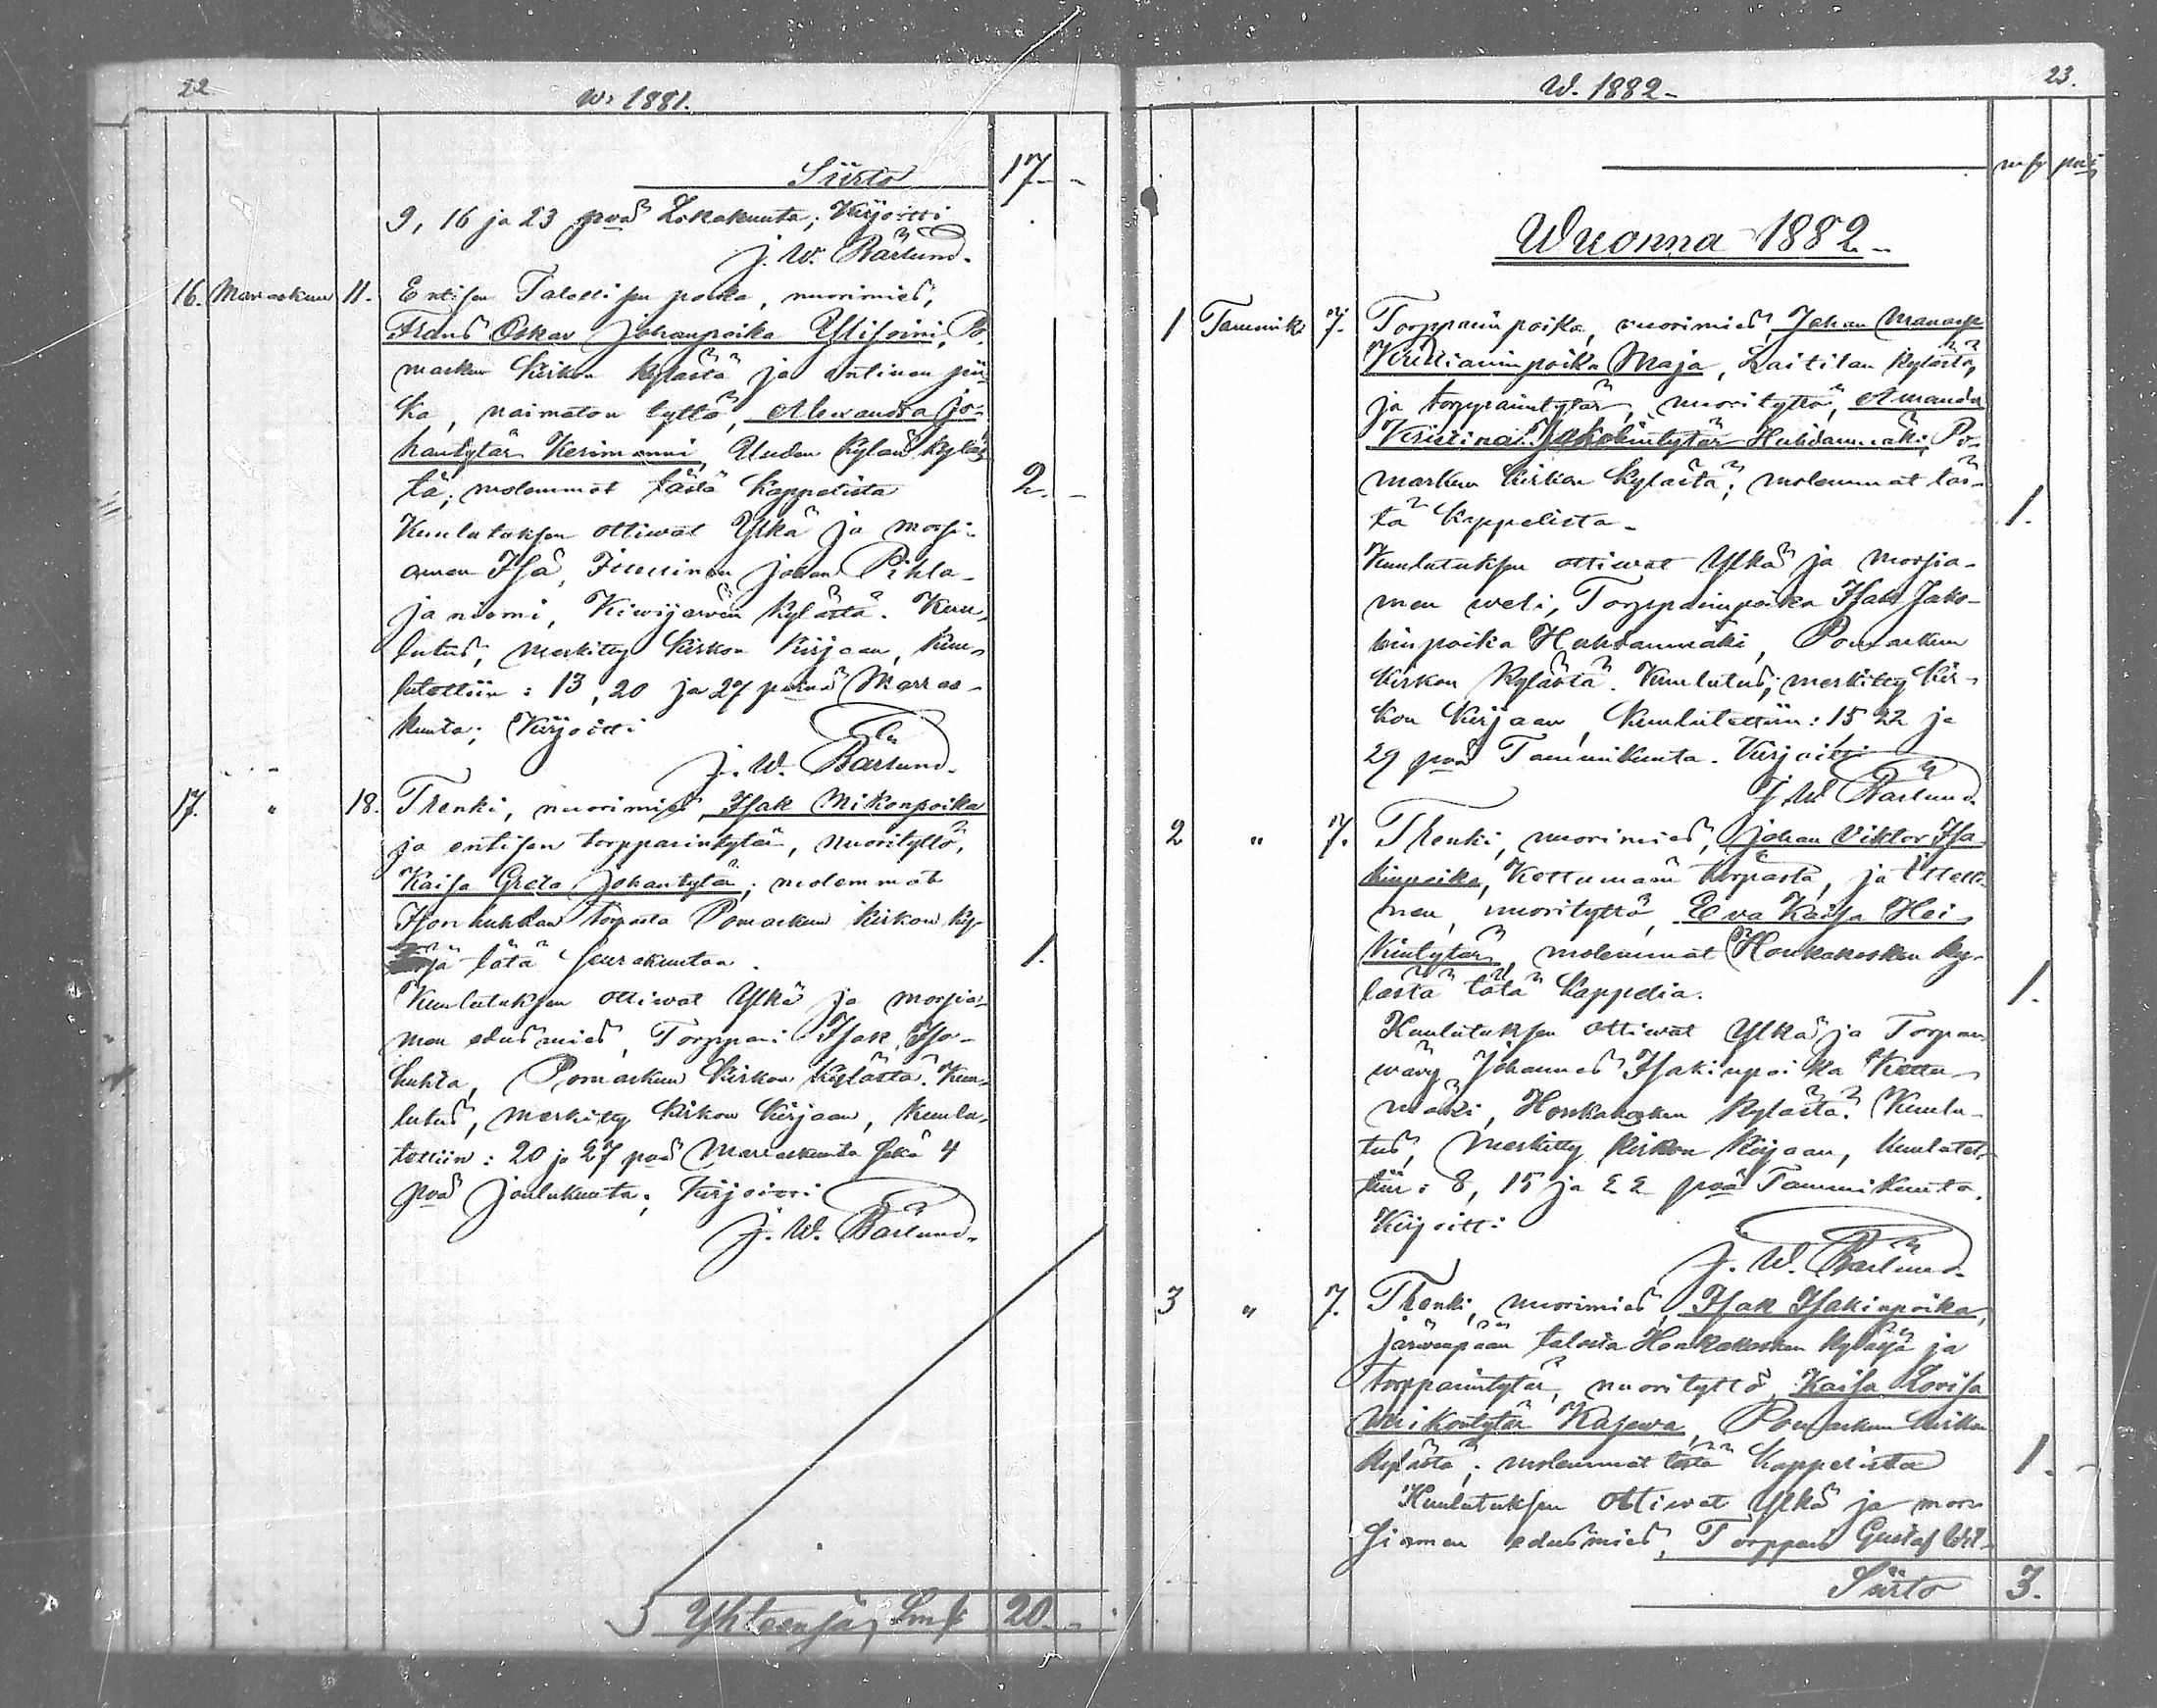 22.
W. 1881.
Siirto 17 -
9, 16 ja 23 pvä Lokakuuta; Kirjoitti
J. W. Bärlund.
16. Marraskuu 11. Entisen Talollisen poika, nuorimies,
Frans Oskar Johanpoika Ylisoini, Po-
markun Kirkon kylästä ja entinen pii-
ka, naimaton tyttö, Alexandra Jo-
hantytär Kerimanni, Uuden kylän kyläs-
tä; molemmat tästä Kappelista 2. -
Kuulutuksen ottiwat Ylkä ja morsi-
amen Isä, Johan Pihla-
janiemi, Kiwijarwen kylästä. Kuu-
lutus, merkitty kirkon kirjaan, kuu-
lutettiin: 13, 20 ja 27 päinä Marras-
kuuta; Kirjoitti
J. W. Bärlund.
17. " 18. Trenki, nuorimies, Isak Mikonpoika
ja entisen torpparintytär, nuorityttö,
Kaisa Greta Johantytär; molemmat
Isonhuhdan torpasta Pomarkun kirkon ky-
tätä seurakuntaa. 1.
Kuulutuksen ottiwat Ylkä ja morsia-
men edusmies, Torppari Isak Iso-
huhta, Pomarkun Kirkon kylästä. Kuu-
lutus, merkitty kirkon kirjaan, kuulu-
tettiin: 20 ja 27 pvä Marraskuuta sekä 4
pvä Joulukuuta; Kirjoitti
J. W. Bärlund.
Yhteensä, Smk 20. -
W. 1882 -
23.
mk pni
Wuonna 1882 -
1 Tammik 7. Torpparinpoika, nuorimies, Johan
Kristianinpoika Maja, Laitilan kylästä,
ja torpparintytär, nuorityttö, Amanda
Kristina Jakobintytär Huhdanmäki, Po-
markun kirkon kylästä; molemmat täs-
tä Kappelista - 1.
Kuulutuksen ottiwat Ylkä ja morsia-
men weli, Torpparinpoika Isak Jako-
binpoika Huhdanmäki, Pomarkun
kirkon kylästä. Kuulutus, merkitty kir-
kon kirjaan, kuulutettiin: 15 22 ja
29 pvä Tammikuuta. Kirjoitti
J. W. Bärlund
2 " 7. Trenki, nuorimies, Johan Viktor Isa-
kinpoika, Kettumäen torpasta, ja Itselli-
nen, nuorityttö, Eva Kaisa Hei-
kintytär, molemmat Honkakosken ky-
lästä tätä Kappelia. 1.
Kuulutuksen ottiwat Ylkä ja Torpan
wävy Johannes Isakinpoika Kettu-
mäki, Honkakosken kylästä. Kuulu-
tus, merkitty kirkon kirjaan, kuulutet-
tiin: 8, 15 ja 22 pvä Tammikuuta.
Kirjoitti
J. W. Bärlund.
3 " 7. Trenki, nuorimies, Isak Isakinpoika,
Järwenpään talosta Honkakosken kylässä ja
torpparintytär, nuorityttö, Kaisa Lovisa
Mikontytär Kajewa, Pomarkun kirkon
kylästä; molemmat tästä Kappelista 1. -
Kuulutuksen ottiwat Ylkä ja mor-
siamen edusmies, Torppari Gustaf Wil-
Siirto 3.